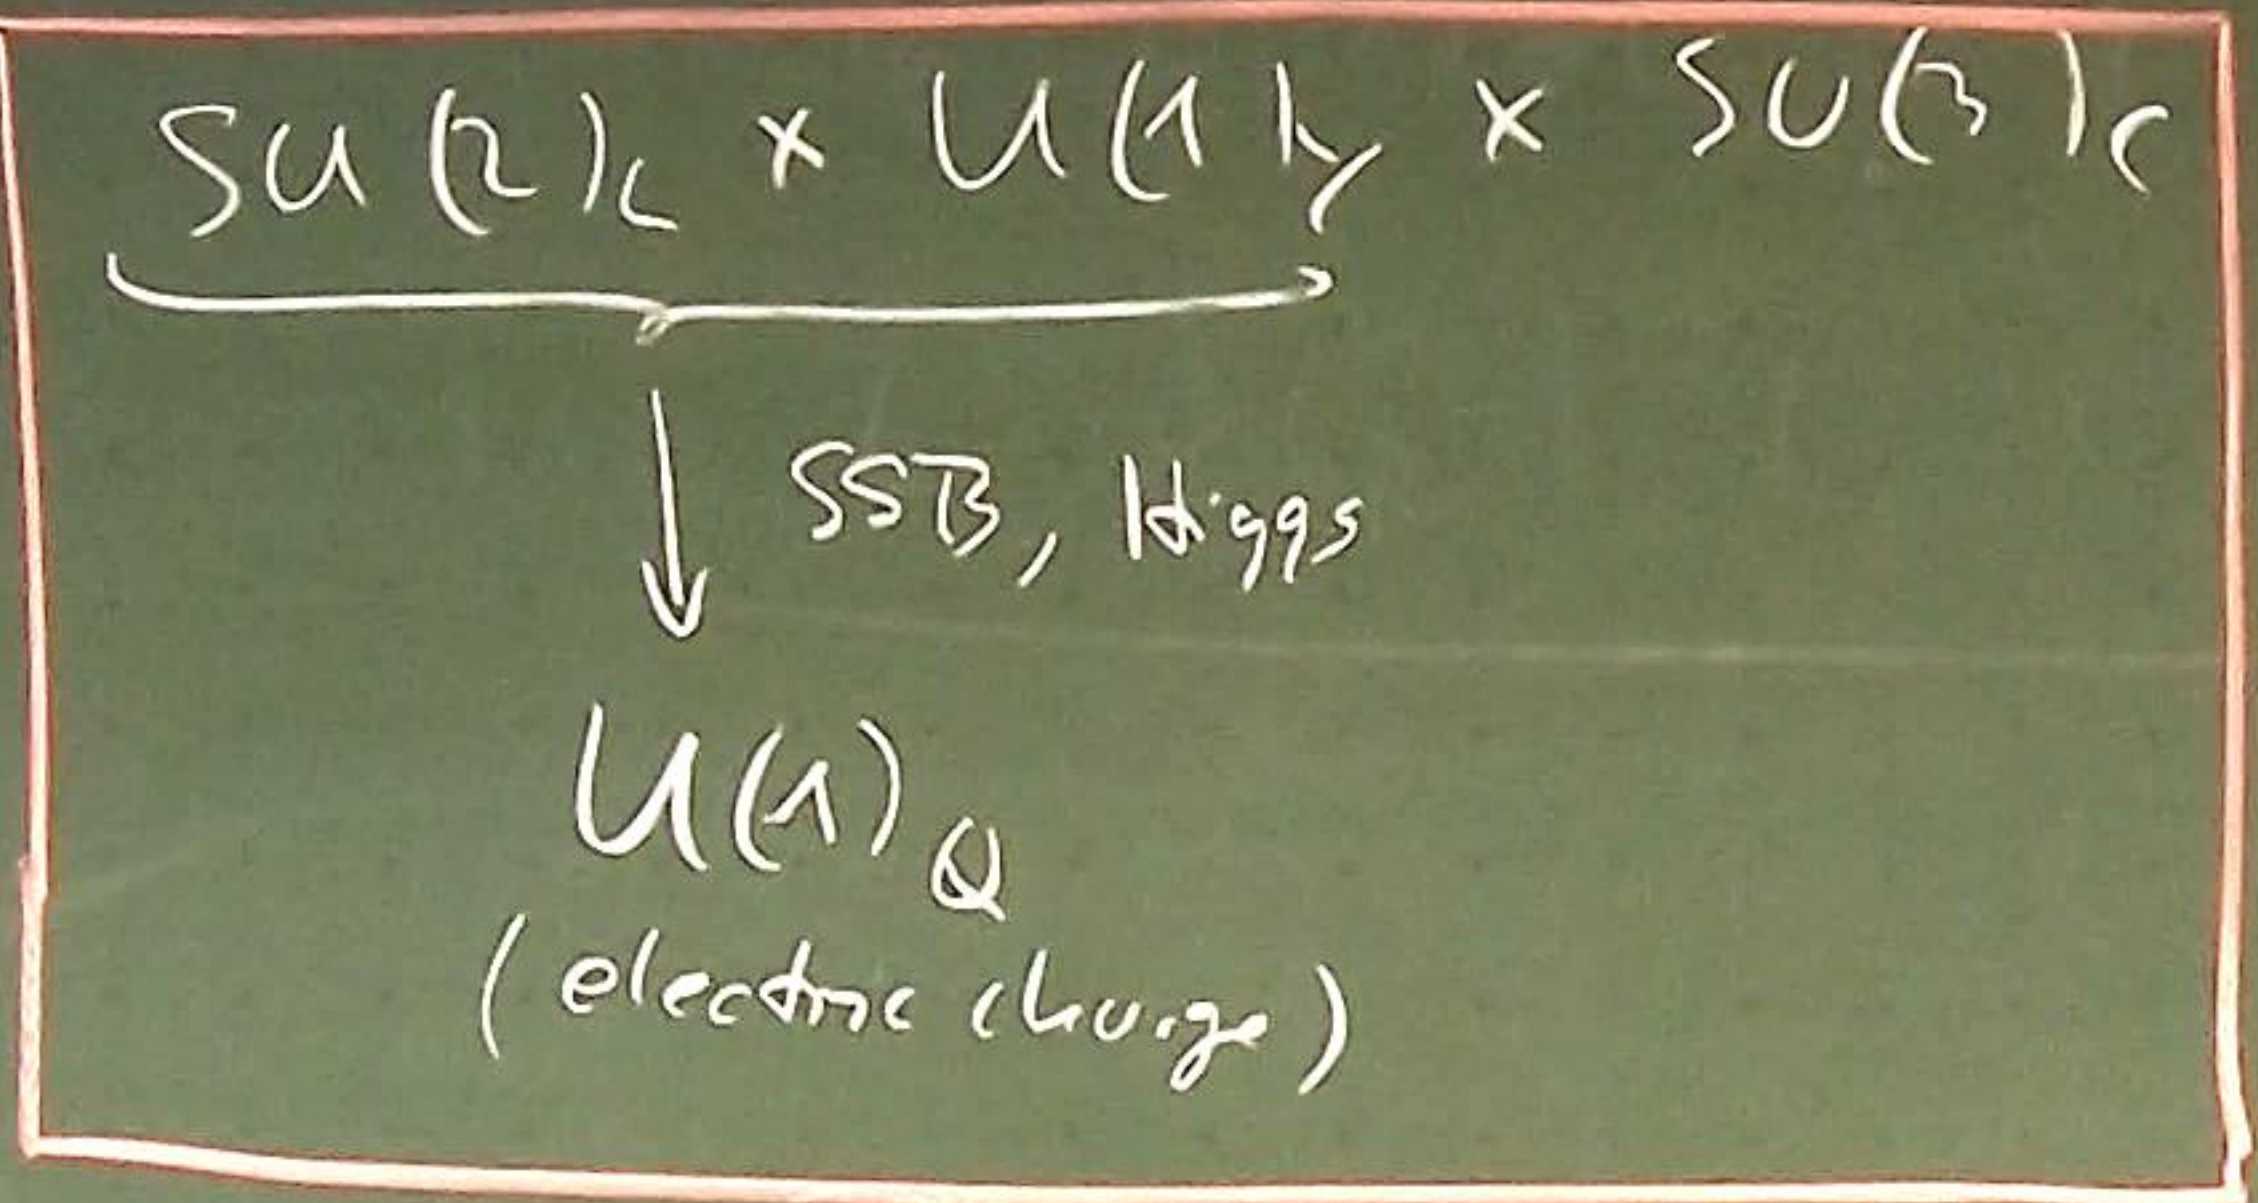 SU(2)_L × U(1)_Y × SU(3)_C
SSB, Higgs
U(1)_Q
(electric charge)